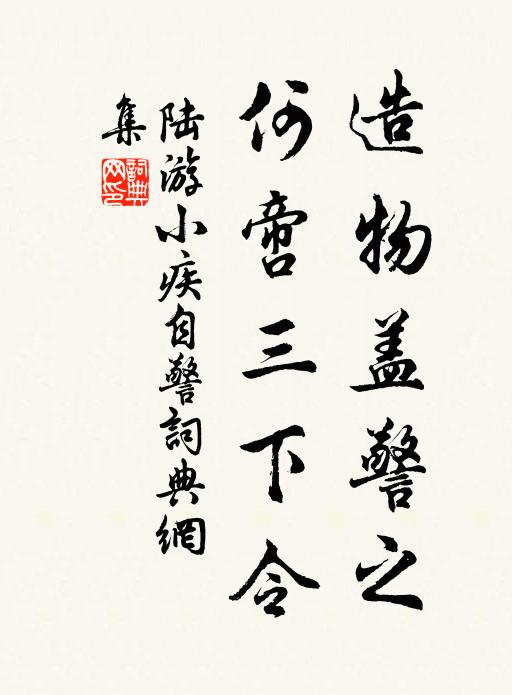 造物盖警之
何啻三下令
陆游小疾自警詞典網
集
詞典网印